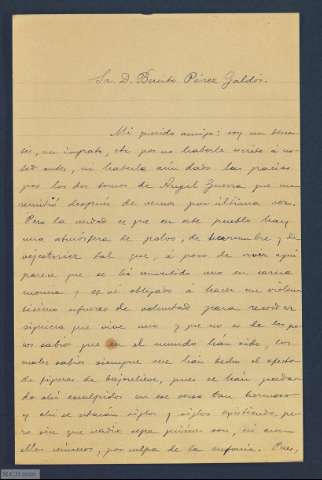 Sr. D. Benito Pérez Galdós.
Mi querido amigo: soy un
un ingrato, etc por no haberle escrito á us-
ted antes, no haberle aún dado las gracias
por los dos tomos de Angel Guerra que me
remitió después de vernos por última vez.
Pero la verdad es que en este pueblo hay
una atmósfera de polvo, de y de
tal que, á poco de vivir aquí
parece que se há convertido uno en carne
momia y es vé obligado á hacer un violen-
tísimo esfuerzo de voluntad para recordar
siquiera que vive uno y que no es de los pe-
sos sabios que en el mundo han sido, los
cuales sabios siempre me hán hecho el efecto
de figuras de bajorelieve, pues se hán queda-
do ahí esculpidos en ese verso tan hermoso
y ahí se estarán siglos y siglos existiendo, pe-
ro sin que nadie sepa quienes son, ni aun
ellos mismos, por culpa de la Pues,